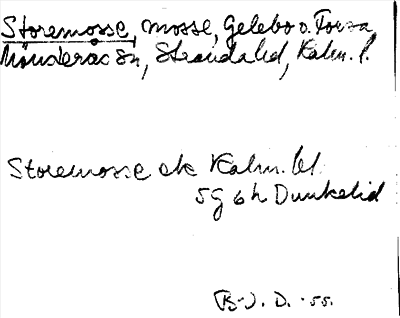 Storemosse, mosse, Gelebo o. Torsa,
Mönsterås sn, Stranda hd, Kalm. l.
Storemosse ek Kalm. bl.
5G 6h Dunkelid
B-J. D. -55.